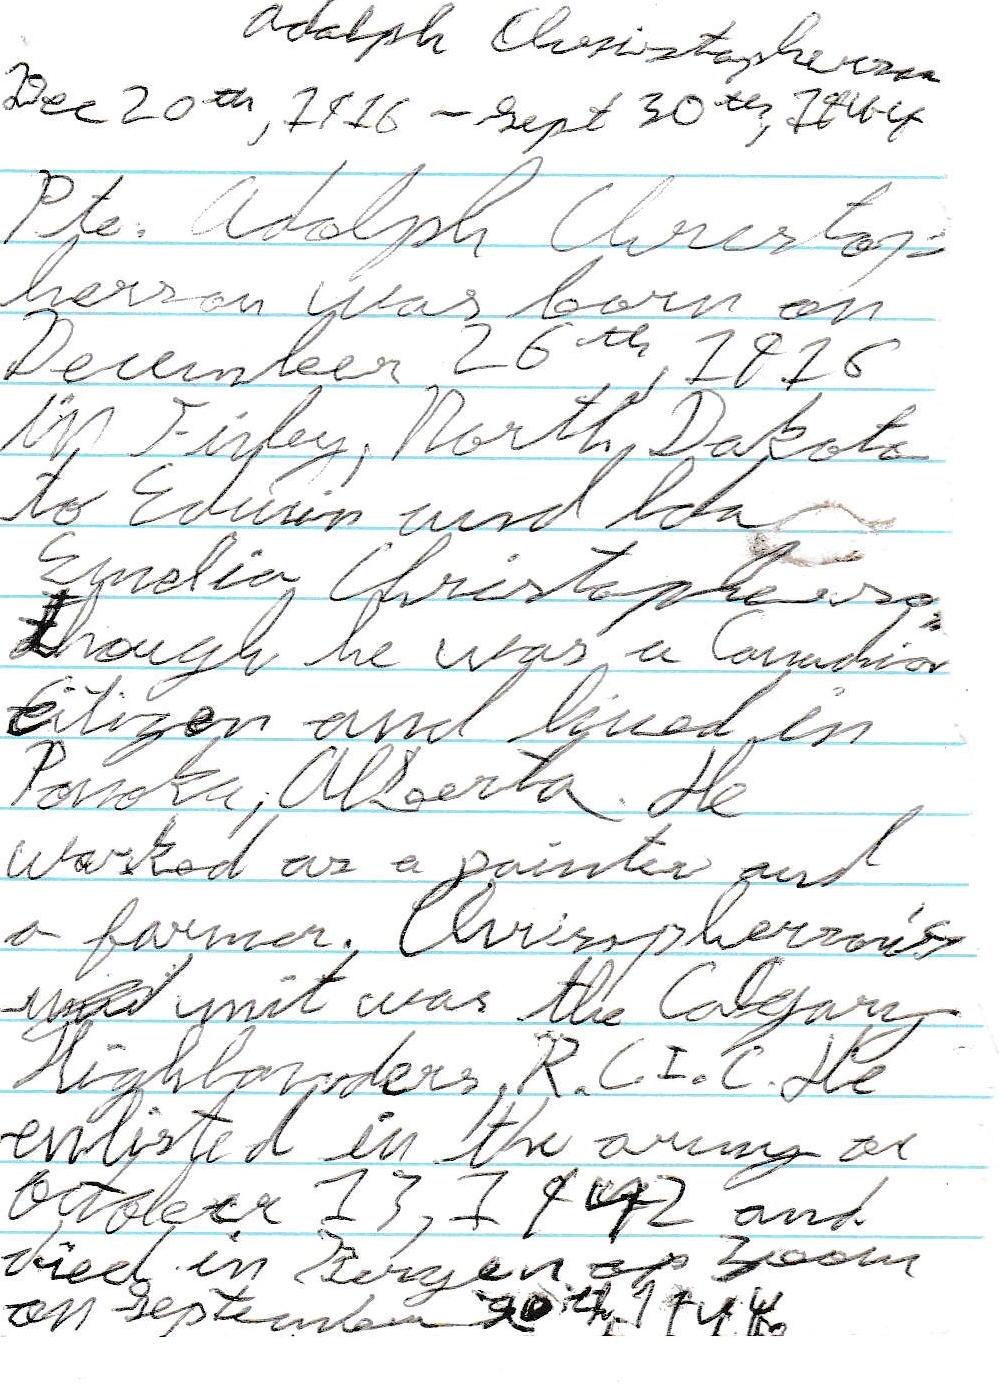 Adolph Chrisistopherson
Dec 20th, 1916 - Sept 30th, 1944
Pte. Adolph Christop-
herson was born on
December 26th, 1916
in Finley, North Dakota
to Edwin and Ida
Emelia Christopherson,
though he was a Canadian
citizen and lived in
Ponoka, Alberta. He
worked as a painter and
a farmer. Chrisopherson's
unit was the Calgary
Highlanders, R.C.I.C. He
enlisted in the army on
October 13, 1942 and
died in Bergen op Zoom
on September 1944.